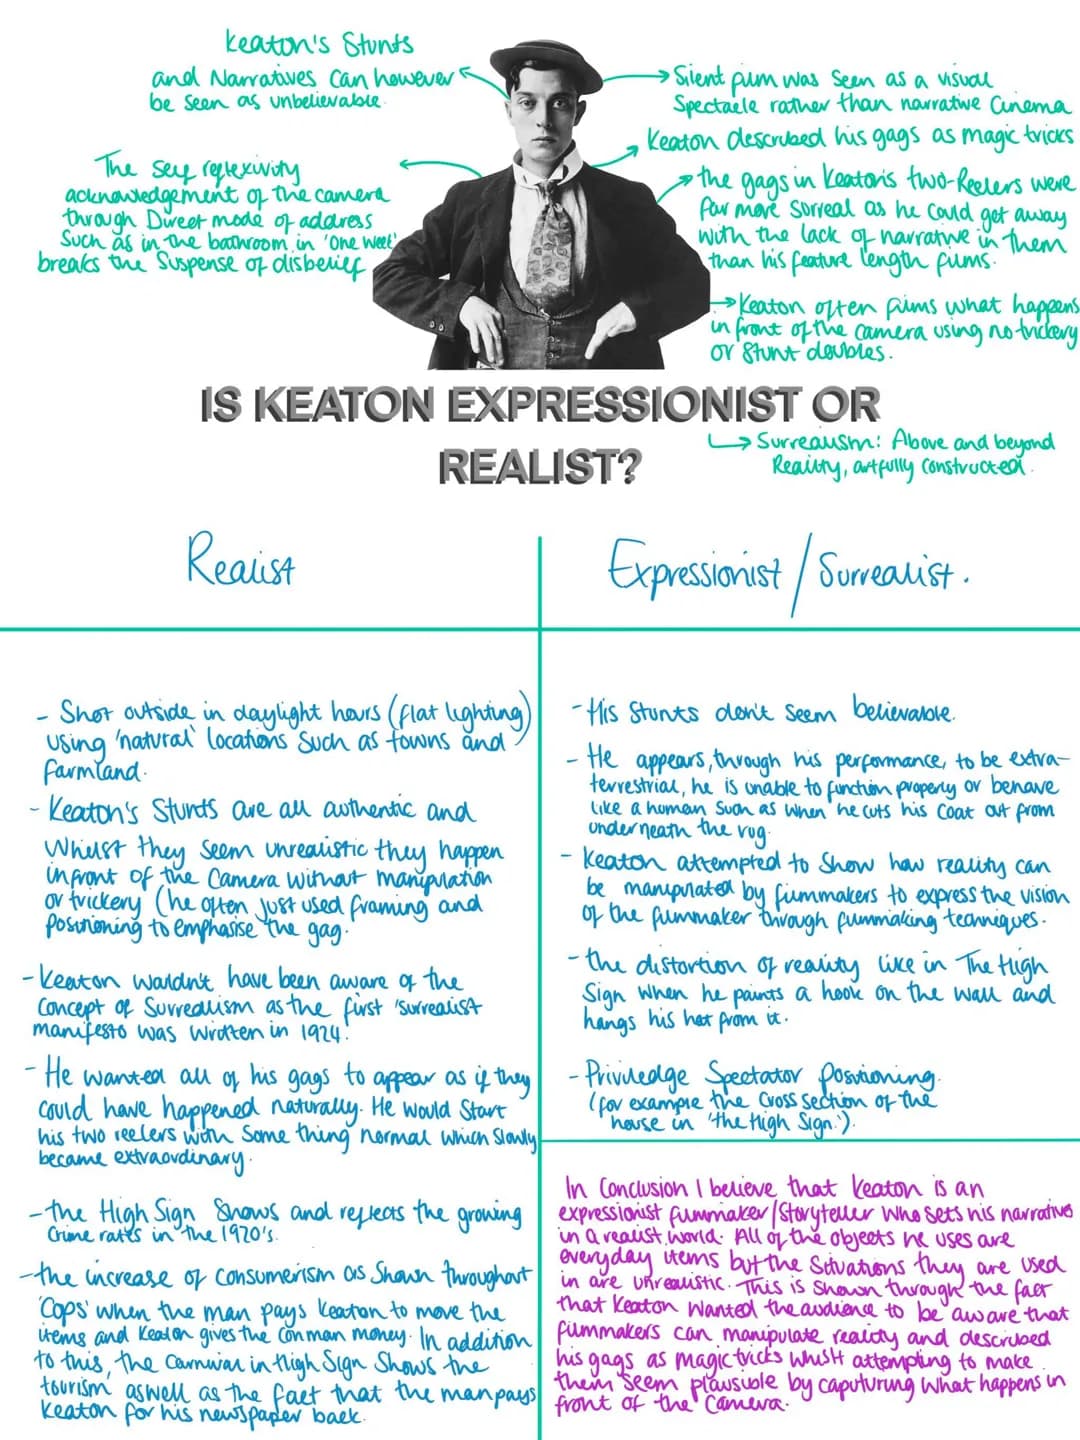 Keaton's Stunts
and Narratives Can however
be seen as unbelievable.
The self reflexivity
acknowledgement of the camera
through Direct mode of address
Such as in the bathroom in 'One Week'
breaks the Suspense of disbelief
→ Silent film was seen as a visual
Spectacle rather than narrative Cinema
Keaton described his gags as magic tricks
the gags in Keaton's two-Reelers were
far more Sorreal as he could get away
with the lack of narrative in them
than his feature length films.
→ Keaton often films what happens
in front of the camera using no trickery
or Stunt doubles.
IS KEATON EXPRESSIONIST OR
REALIST?
→ Surrealism: Above and beyond
Reality, artfully constructed.
Realist
- Shot outside in daylight hours (flat lighting)
using 'natural' locations such as towns and
farmland.
- Keaton's Stunts are all authentic and
Whilst they seem unrealistic they happen
infront of the camera without manipulation
or trickery (he often just used framing and
positioning to emphasise the gag.
- Keaton wouldn't have been aware of the
Concept of Surrealism as the first 'surrealist
manifesto was written in 1924.
- He wanted all of his gags to appear as if they
could have happened naturally. He would Start
his two reelers with Some thing normal which slowly
became extraordinary.
- the High Sign Shows and reflects the growing
Crime rates in the 1920's.
- the increase of consumerism as shown throughout
'Cops' when the man pays Keaton to move the
items and Keaton gives the Conman money. In addition
to this, the Carnival in High Sign Shows the
tourism aswell as the fact that the man pays
Keaton for his newspaper back.
Expressionist / Surrealist.
- His Stunts don't seem believable.
- He appears, through his performance, to be extra-
terrestrial, he is unable to function properly or behave
like a human such as when he cuts his coat out from
underneath the rug.
- Keaton attempted to Show how reality can
be manipulated by filmmakers to express the vision
of the filmmaker through filmmaking techniques.
- the distortion of reality like in The High
Sign when he paints a hook on the wall and
hangs his hat from it.
- Priviledge Spectator Positioning.
(for example the cross section of the
house in 'the High Sign').
In Conclusion I believe that Keaton is an
expressionist filmmaker/Storyteller who sets his narrative
in a realist world. All of the objects he uses are
everyday items but the Situations they are used
in are unrealistic. This is Shown through the fact
that Keaton wanted the audience to be aware that
filmmakers can manipulate reality and described
his gags as magic tricks whilst attempting to make
them seem plausible by caputuring what happens in
front of the Camera.